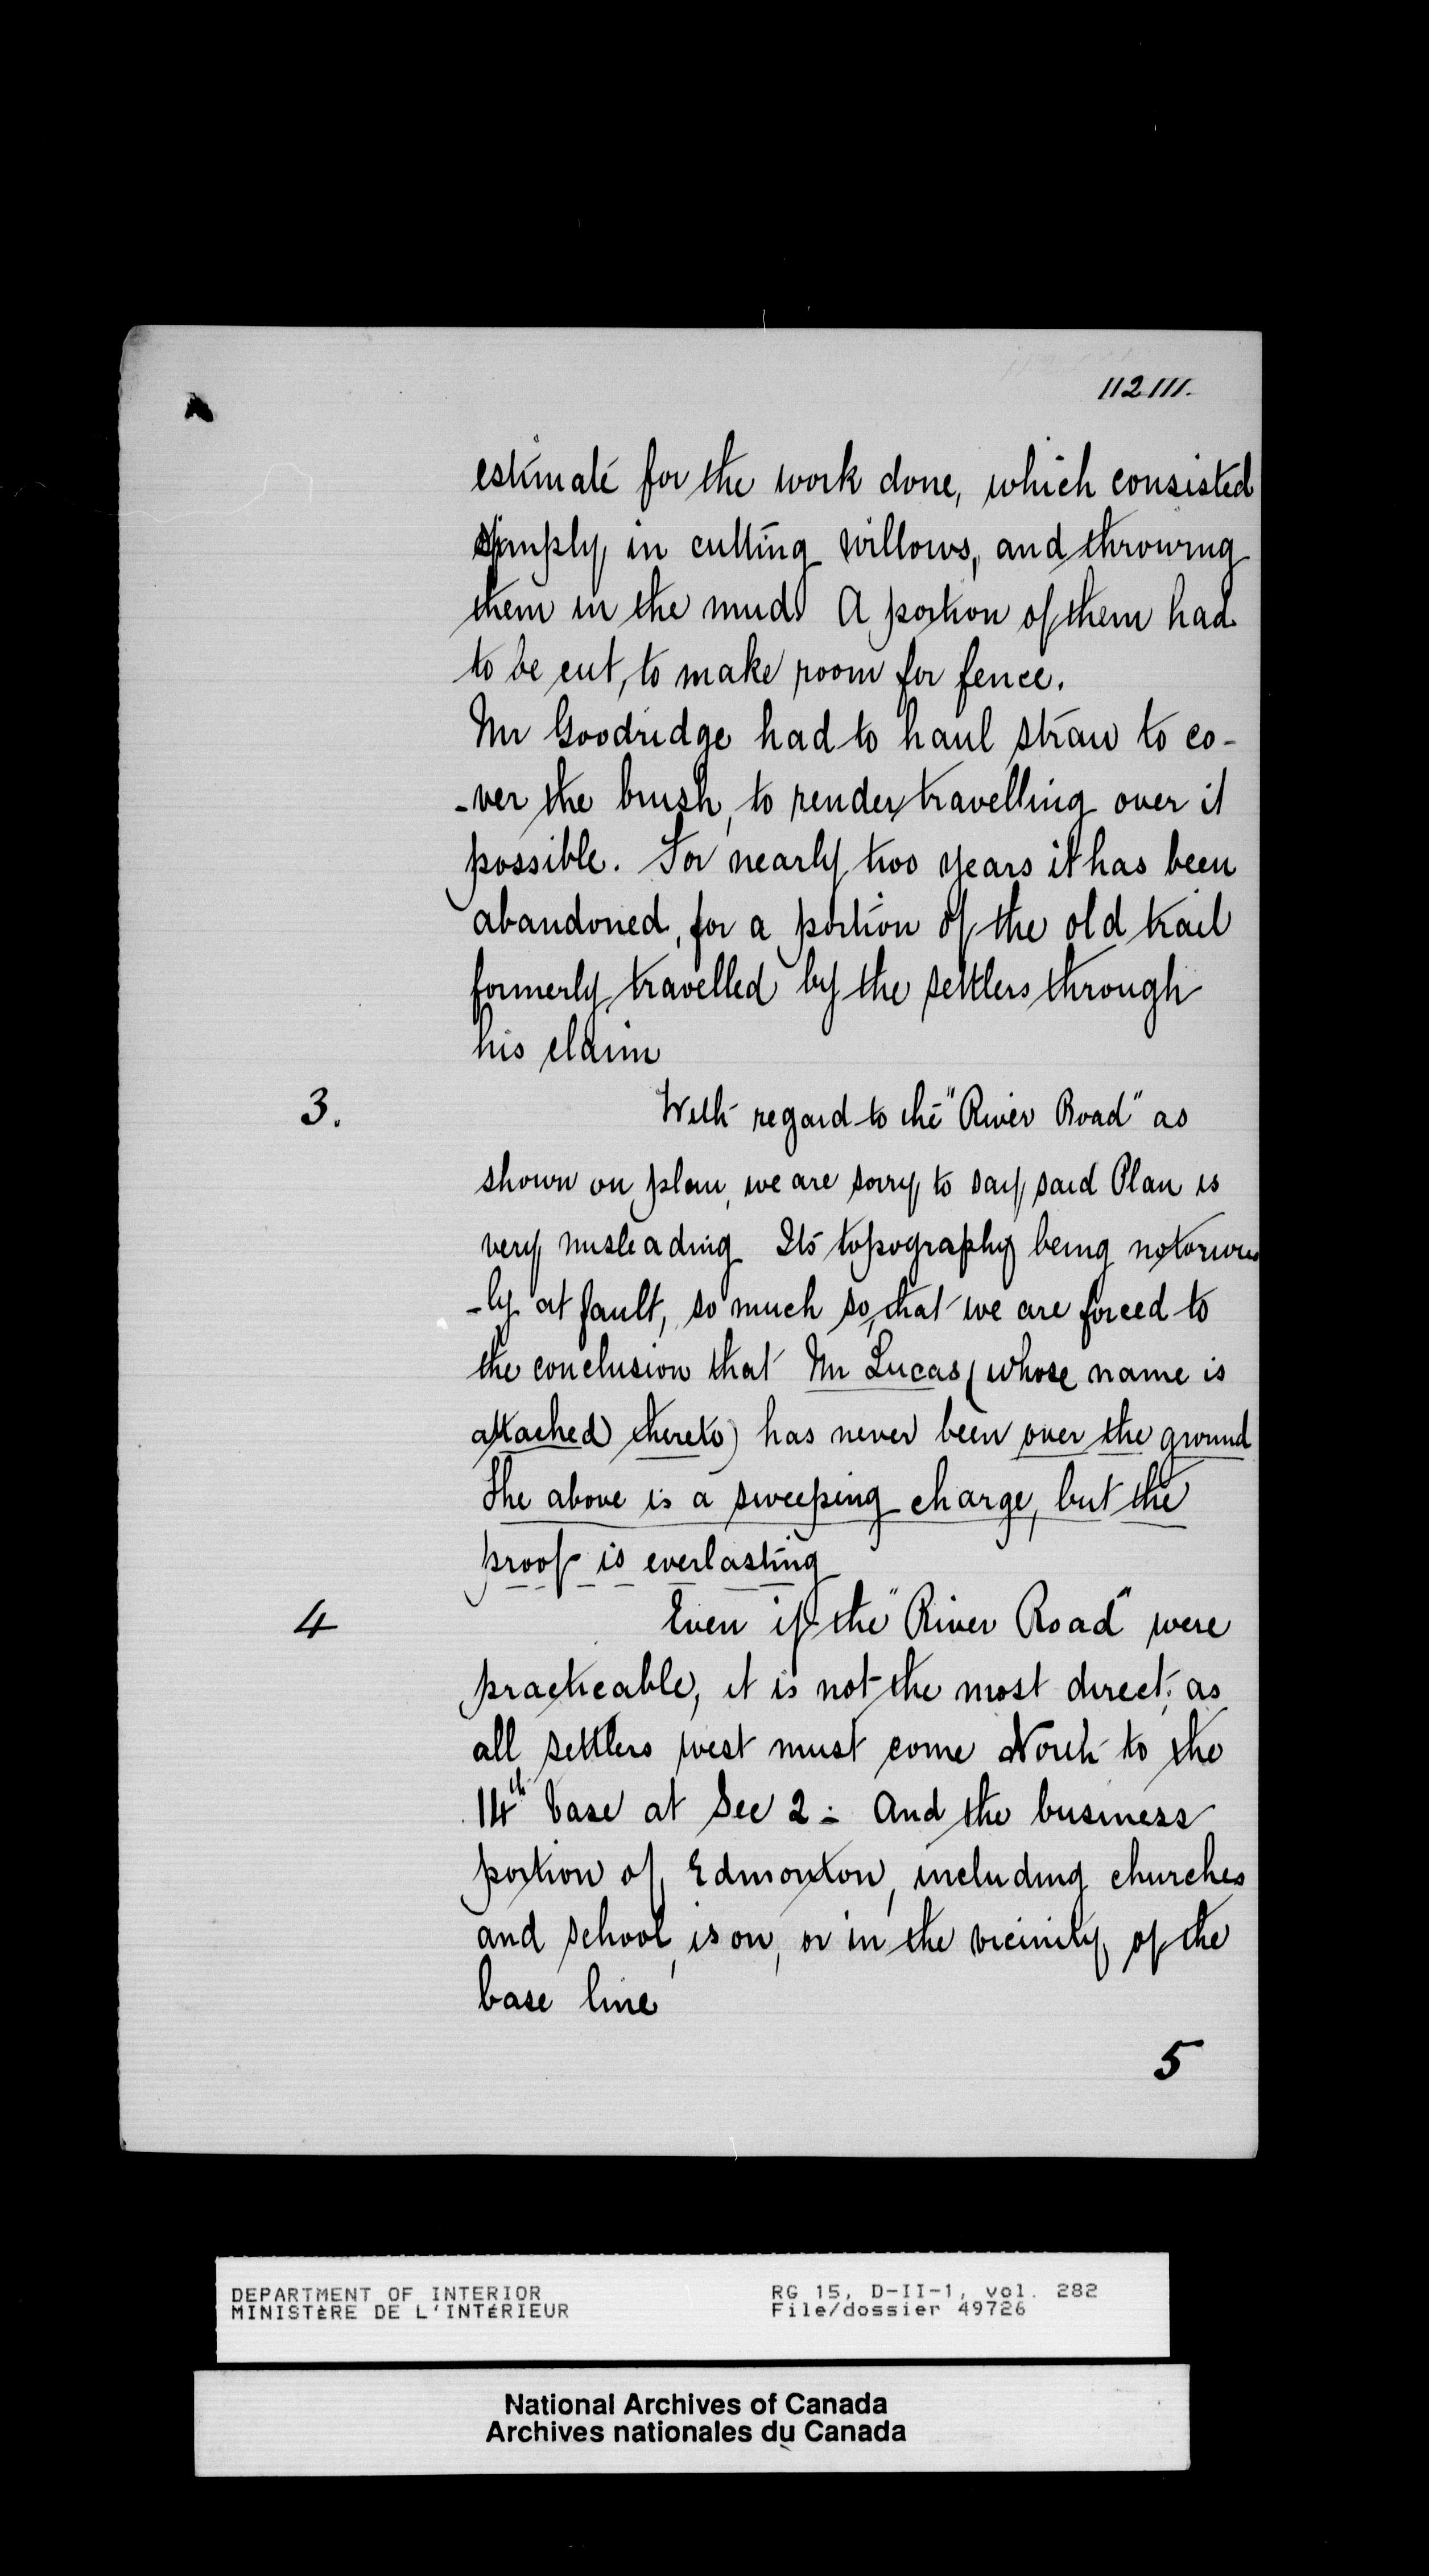 112111.
estimate for the work done, which consisted
simply in cutting willows, and throwing
them in the mud. A portion of them had
to be cut, to make room for fence.
Mr Goodridge had to haul straw to co-
-ver the brush, to render travelling over it
possible. For nearly two years it has been
abandoned, for a portion of the old trail
formerly travelled by the settlers through
his claim
3. With regard to the "River Road" as
shown on plan, we are sorry to say said Plan is
very misleading Its topography being notorious
-ly at fault, so much so, that we are forced to
the conclusion that Mr Lucas (whose name is
attached thereto) has never been over the ground
The above is a sweeping charge, but the
proof is everlasting
4 Even if the "River Road" were
practicable, it is not the most direct, as
all settlers west must come North to the
14th base at Sec 2 - And the business
portion of Edmonton, including churches
and school, is on, or in the vicinity of the
base line
5
DEPARTMENT OF INTERIOR RG 15, D-II-1, vol. 282
MINISTÈRE DE L'INTÉRIEUR File/dossier 49726
National Archives of Canada
Archives nationales du Canada